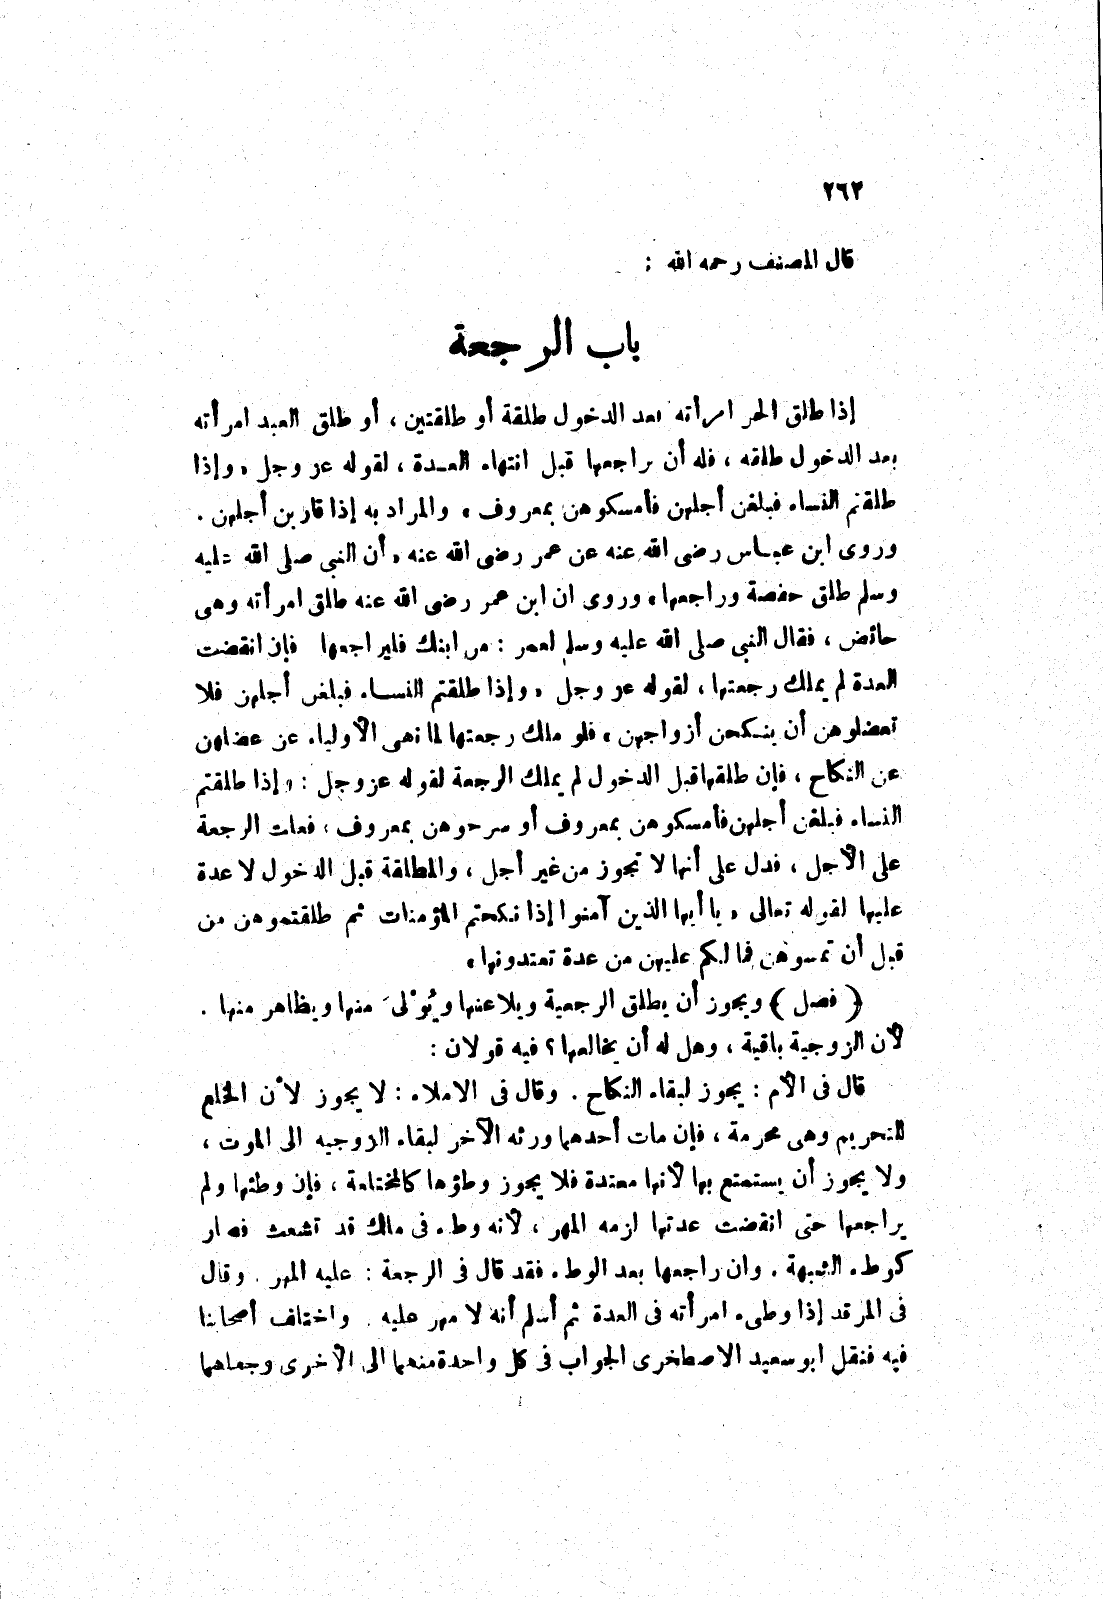 ٢٦٢
قال المصنف رحمه الله :
باب الرجعة
إذا طلق الحر امرأته بعد الدخول طلقة أو طلقتين ، أو طلق العبد امرأته
بعد الدخول طلقه ، فله أن يراجعها قبل انتهاء العدة ، لقوله عز وجل « وإذا
طلقتم النساء فبلغن أجلهن فأمسكوهن بمعروف » والمراد به إذا قاربن أجلهن .
وروى ابن عباس رضى الله عنه عن عمر رضى الله عنه « أن النبى صلى الله عليه
وسلم طلق حفصة وراجعها » وروى ان ابن عمر رضى الله عنه طلق امرأته وهى
حائض ، فقال النبى صلى الله عليه وسلم لعمر : مر ابنك فليراجعها فإن انقضت
العدة لم يملك رجعتها ، لقوله عز وجل « وإذا طلقتم النساء فبلغن أجلهن فلا
تعضلوهن أن ينكحن أزواجهن » فلو ملك رجعتها لما نهى الأولياء عن عضلهن
عن النكاح ، فإن طلقها قبل الدخول لم يملك الرجعة لقوله عزوجل : « إذا طلقتم
النساء فبلغن أجلهن فأمسكوهن بمعروف أو سرحوهن بمعروف ، فعلت الرجعة
على الأجل ، فدل على أنها لا تجوز من غير أجل ، والمطلقة قبل الدخول لا عدة
عليها لقوله تعالى « يا أيها الذين آمنوا إذا نكحتم المؤمنات ثم طلقتموهن من
قبل أن تمسوهن فما لكم عليهن من عدة تعتدونها »
( فصل ) ويجوز أن يطلق الرجعية ويلاعنها ويُوْلىَ منها ويظاهر منها .
لأن الزوجية باقية ، وهل له أن يخالعها ؟ فيه قولان :
قال فى الأم : يجوز لبقاء النكاح . وقال فى الاملاء : لا يجوز لأن الخلع
للتحريم وهى محرمة ، فإن مات أحدهما ورثه الآخر لبقاء الزوجيه الى الموت ،
ولا يجوز أن يستمتع بها لأنها معتدة فلا يجوز وطؤها كالمختلعة ، فإن وطئها ولم
يراجعها حتى انقضت عدتها لزمه المهر ، لأنه وطء فى ملك قد تشعث فصار
كوطء الشبهة . وان راجعها بعد الوطء فقد قال فى الرجعة : عليه المهر . وقال
فى المرتد إذا وطىء امرأته فى العدة ثم أسلم أنه لا مهر عليه . واختلف أصحابنا
فيه فنقل ابو سعيد الاصطخرى الجواب فى كل واحدة منهما الى الأخرى وجعلهما